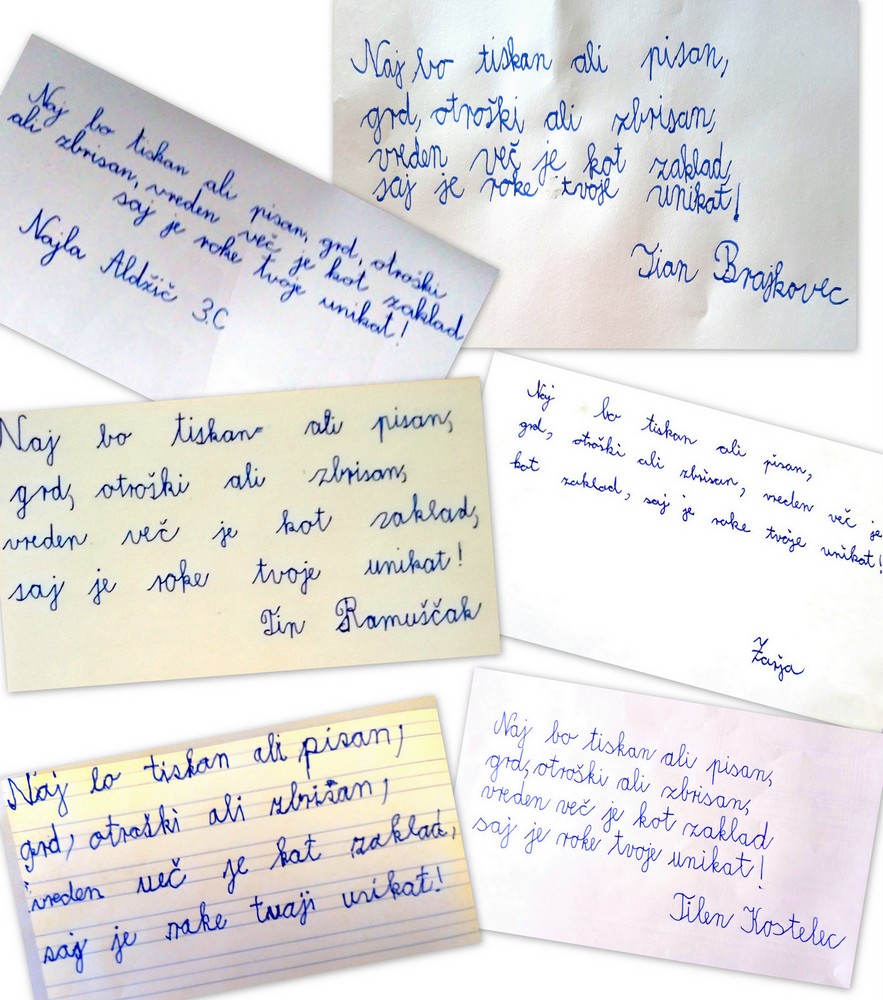 Naj bo tiskan ali pisan, grd, otroški
ali zbrisan, vreden več je kot zaklad
saj je roke tvoje unikat!
Najla Aldžič 3.C
Naj bo tiskan ali pisan,
grd, otroški ali zbrisan,
vreden več je kot zaklad,
saj je roke tvoje unikat!
Tian Brajkovec
Naj bo tiskan ali pisan,
grd, otroški ali zbrisan,
vreden več je kot zaklad,
saj je roke tvoje unikat!
Tin Ramuščak
Naj bo tiskan ali pisan,
grd, otroški ali zbrisan, vreden več je
kot zaklad, saj je roke tvoje unikat!
Žarja
Naj lo tiskan ali pisan,
grd, otraški ali zbrišan,
vreden več je kat zaklad,
saj je rake tvaji unikat!
Naj bo tiskan ali pisan,
grd, otroški ali zbrisan,
vreden več je kot zaklad
saj je roke tvoje unikat!
Tilen Kostelec